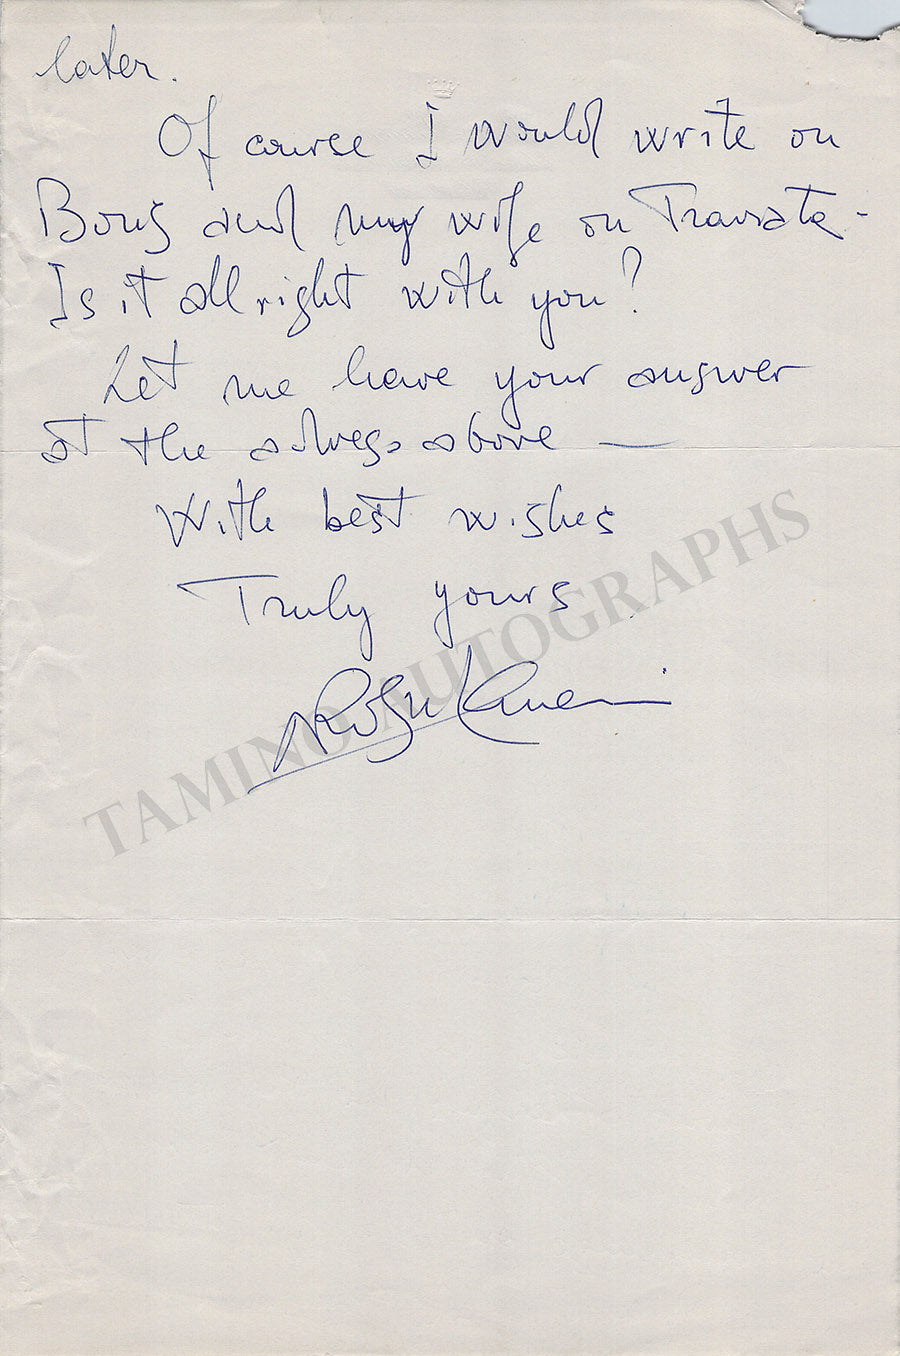 later.
Of course I would write on
Boris and my wife on Traviata -
Is it all right with you?
Let me have your answer
at the adress above —
With best wishes
Truly yours
TAMINO AUTOGRAPHS